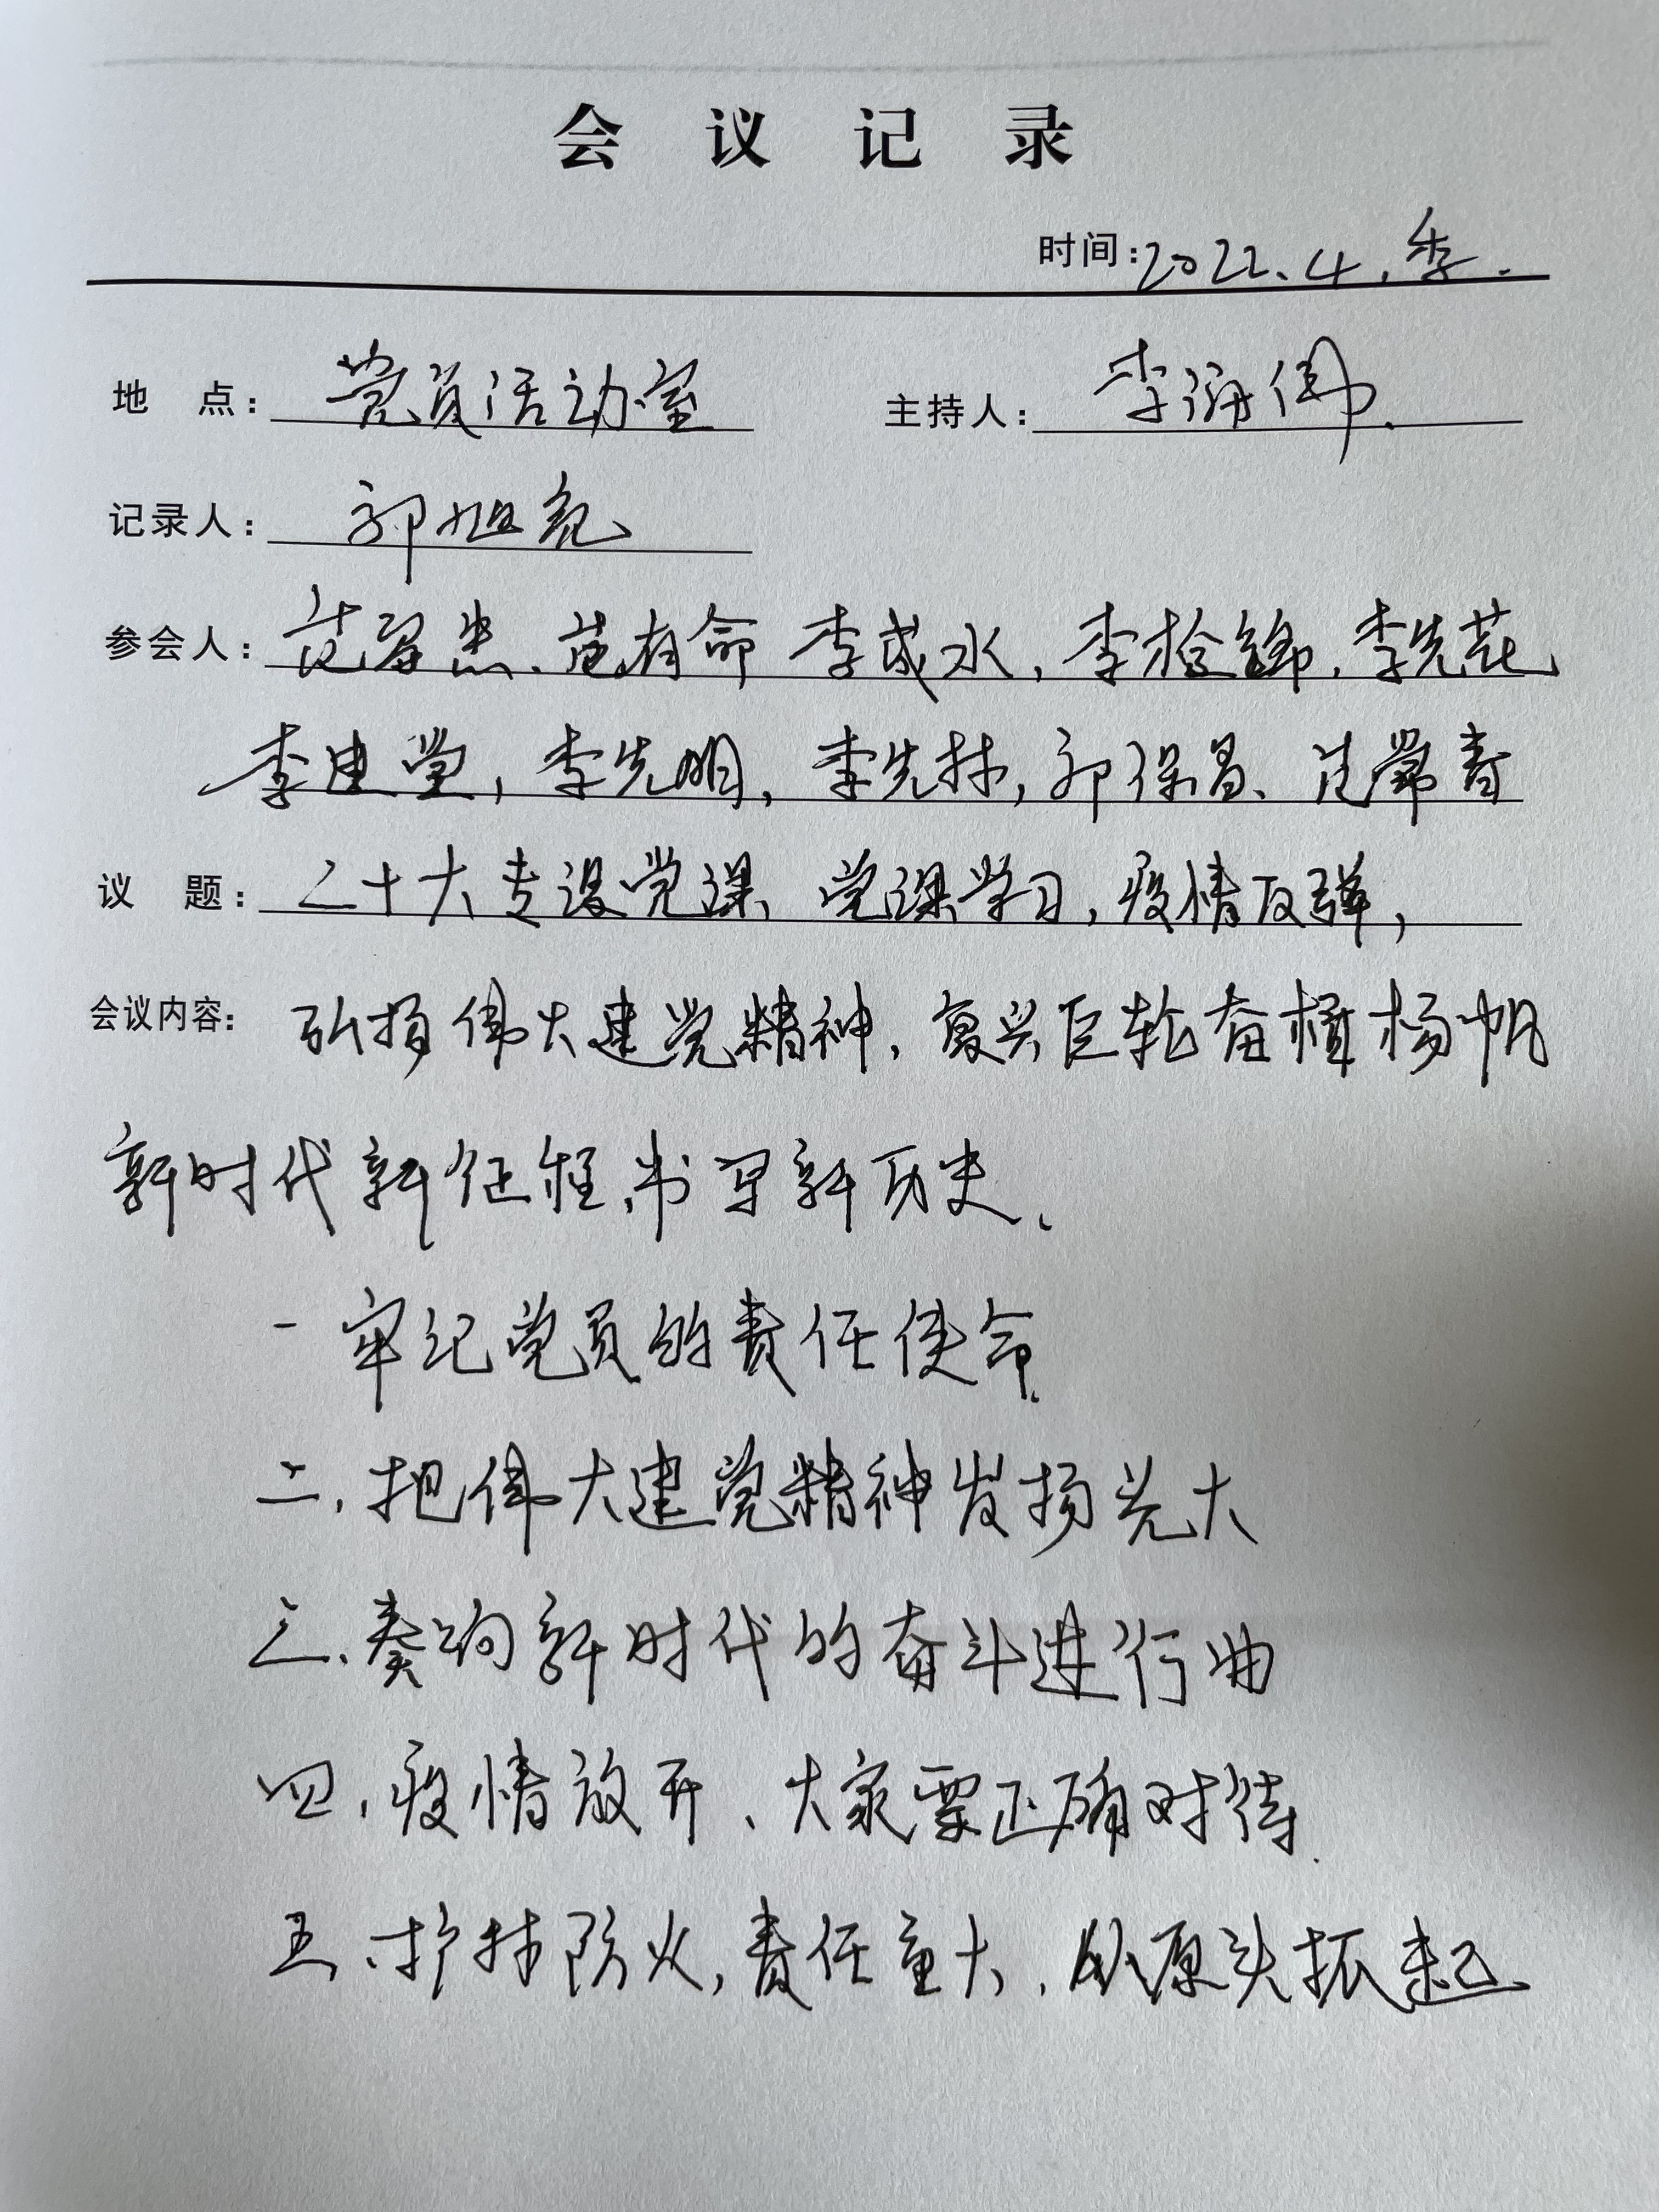 会议记录
时间:2022.4.季.
地 点: 党员活动室 主持人: 李伟.
记录人: 郭旭亮
参会人: 范忠、范有命 李成水, 李栓锦, 李先花
李建堂, 李先明, 李先林, 郭保昌、范常青
议 题: 二十大专设党课、党课学习, 疫情反弹,
会议内容: 弘扬伟大建党精神, 复兴巨轮奋楫杨帆
新时代新征程,书写新历史、
一 牢记党员的责任使命.
二, 把伟大建党精神发扬光大
三、奏响新时代的奋斗进行曲
四, 疫情放开、大家要正确对待.
五、护林防火, 责任重大, 从原头抓起